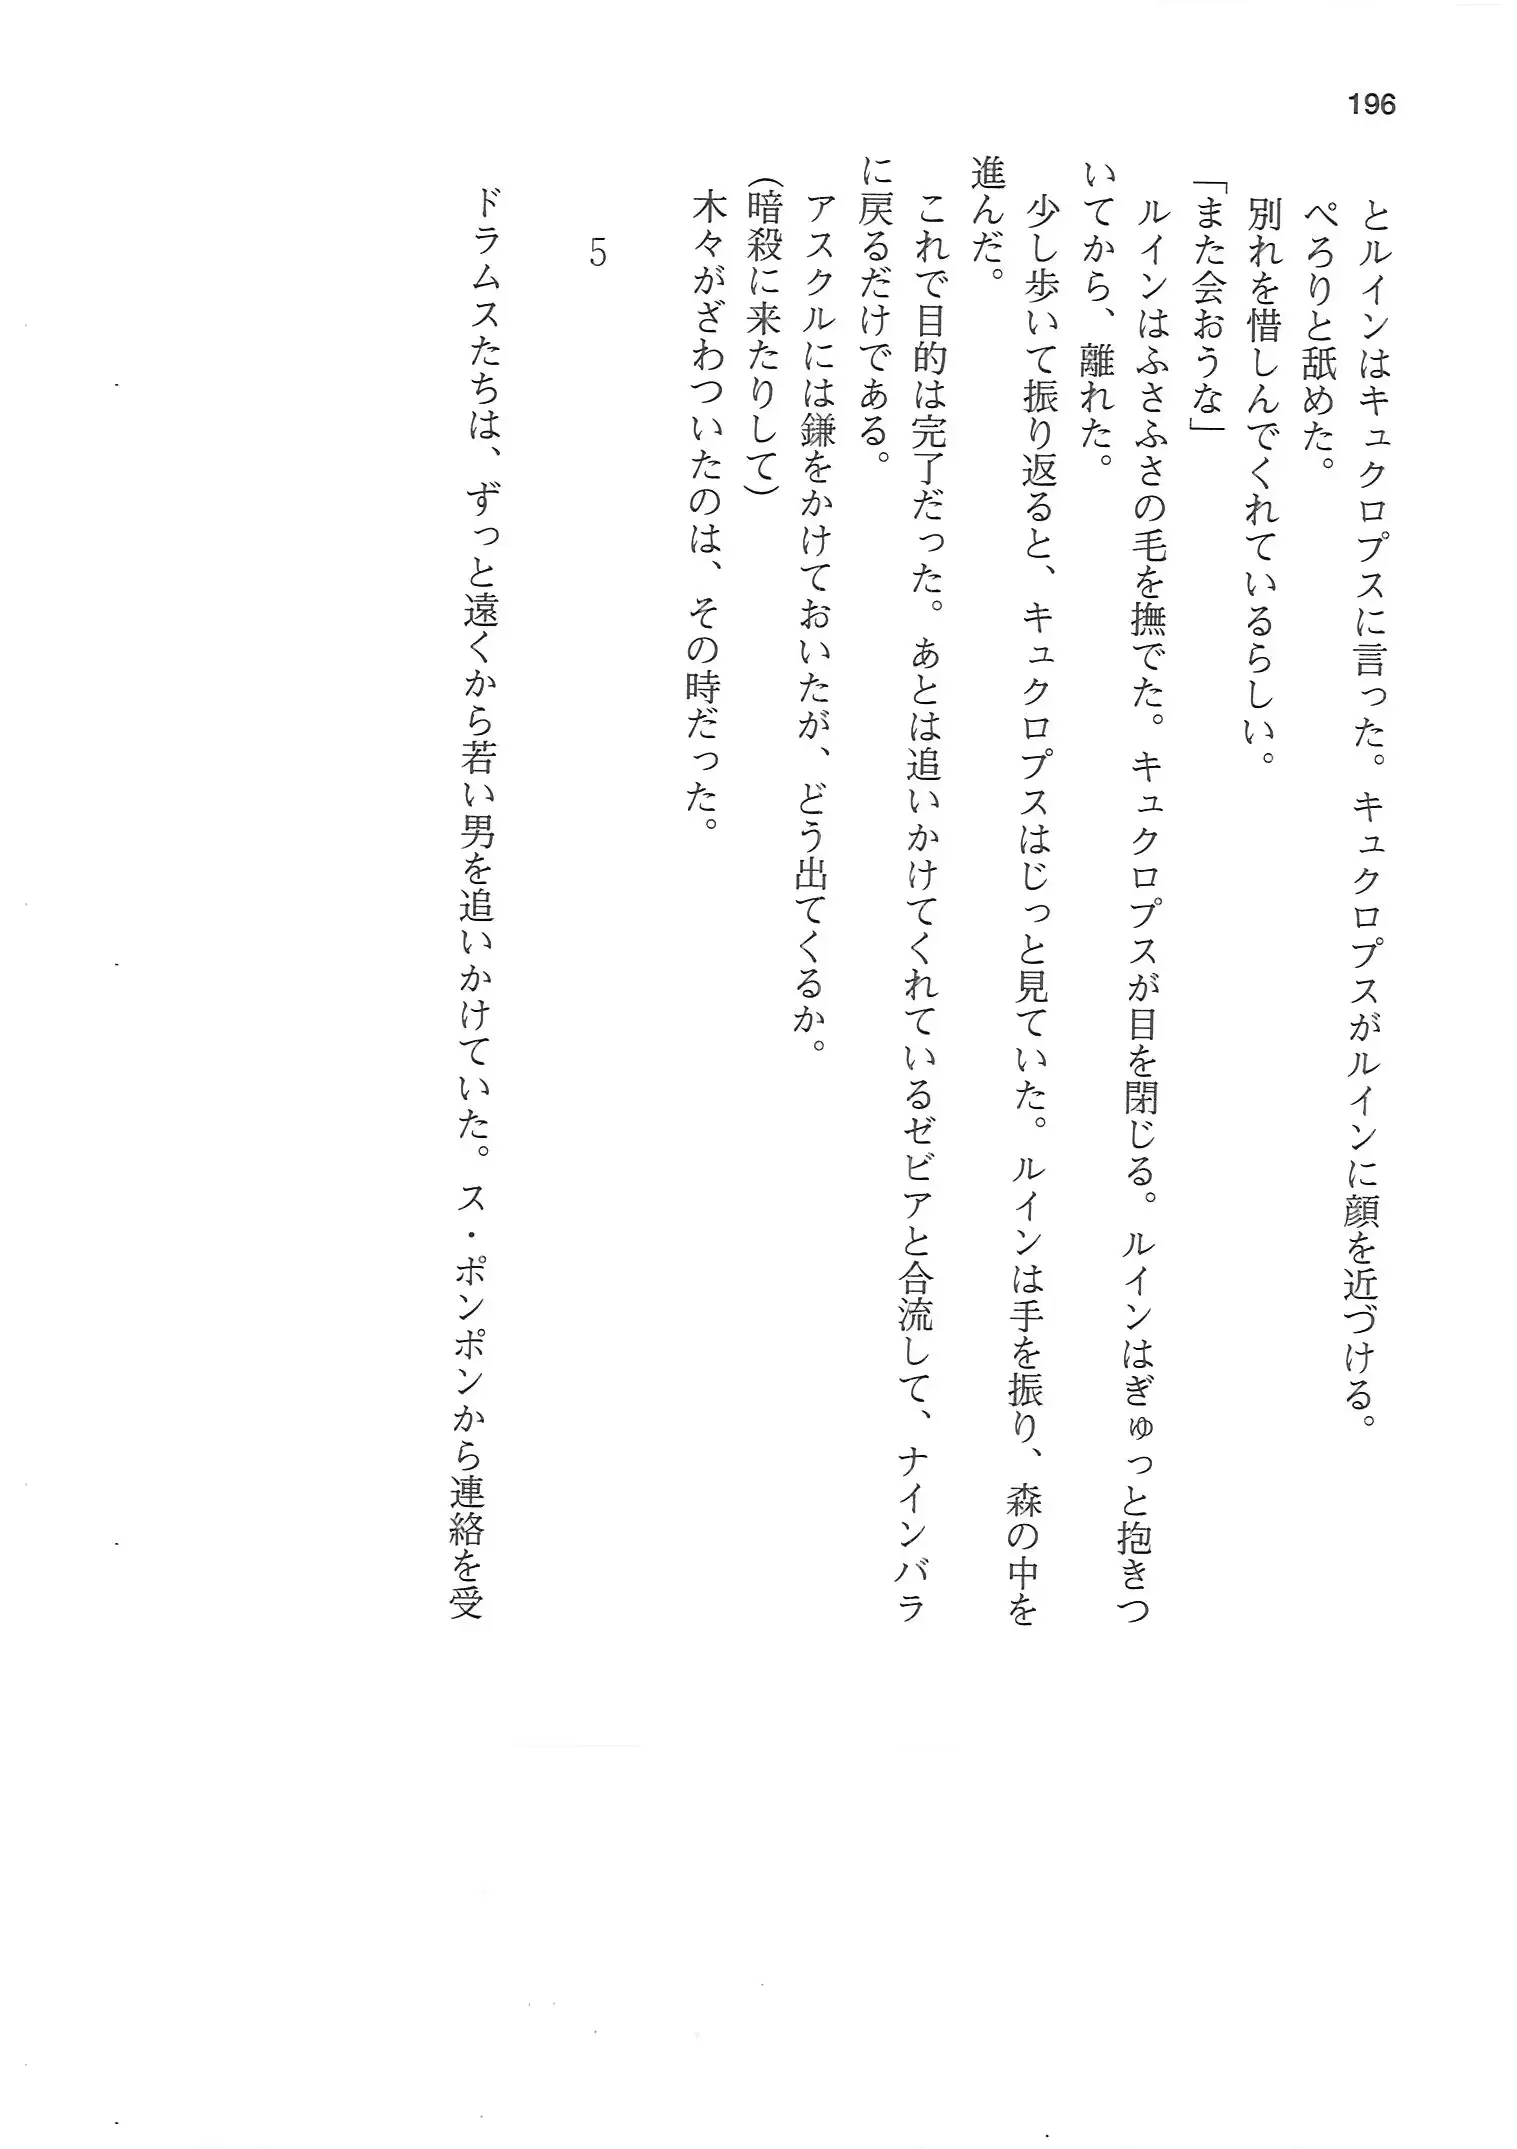 196
とルインはキュクロプスに言った。キュクロプスがルインに顔を近づける。
ぺろりと舐めた。
別れを惜しんでくれているらしい。
「また会おうな」
ルインはふさふさの毛を撫でた。キュクロプスが目を閉じる。ルインはぎゅっと抱きつ
いてから、離れた。
少し歩いて振り返ると、キュクロプスはじっと見ていた。ルインは手を振り、森の中を
進んだ。
これで目的は完了だった。あとは追いかけてくれているゼビアと合流して、ナインバラ
に戻るだけである。
アスクルには鎌をかけておいたが、どう出てくるか。
(暗殺に来たりして)
木々がざわついたのは、その時だった。
5
ドラムスたちは、ずっと遠くから若い男を追いかけていた。ス・ポンポンから連絡を受